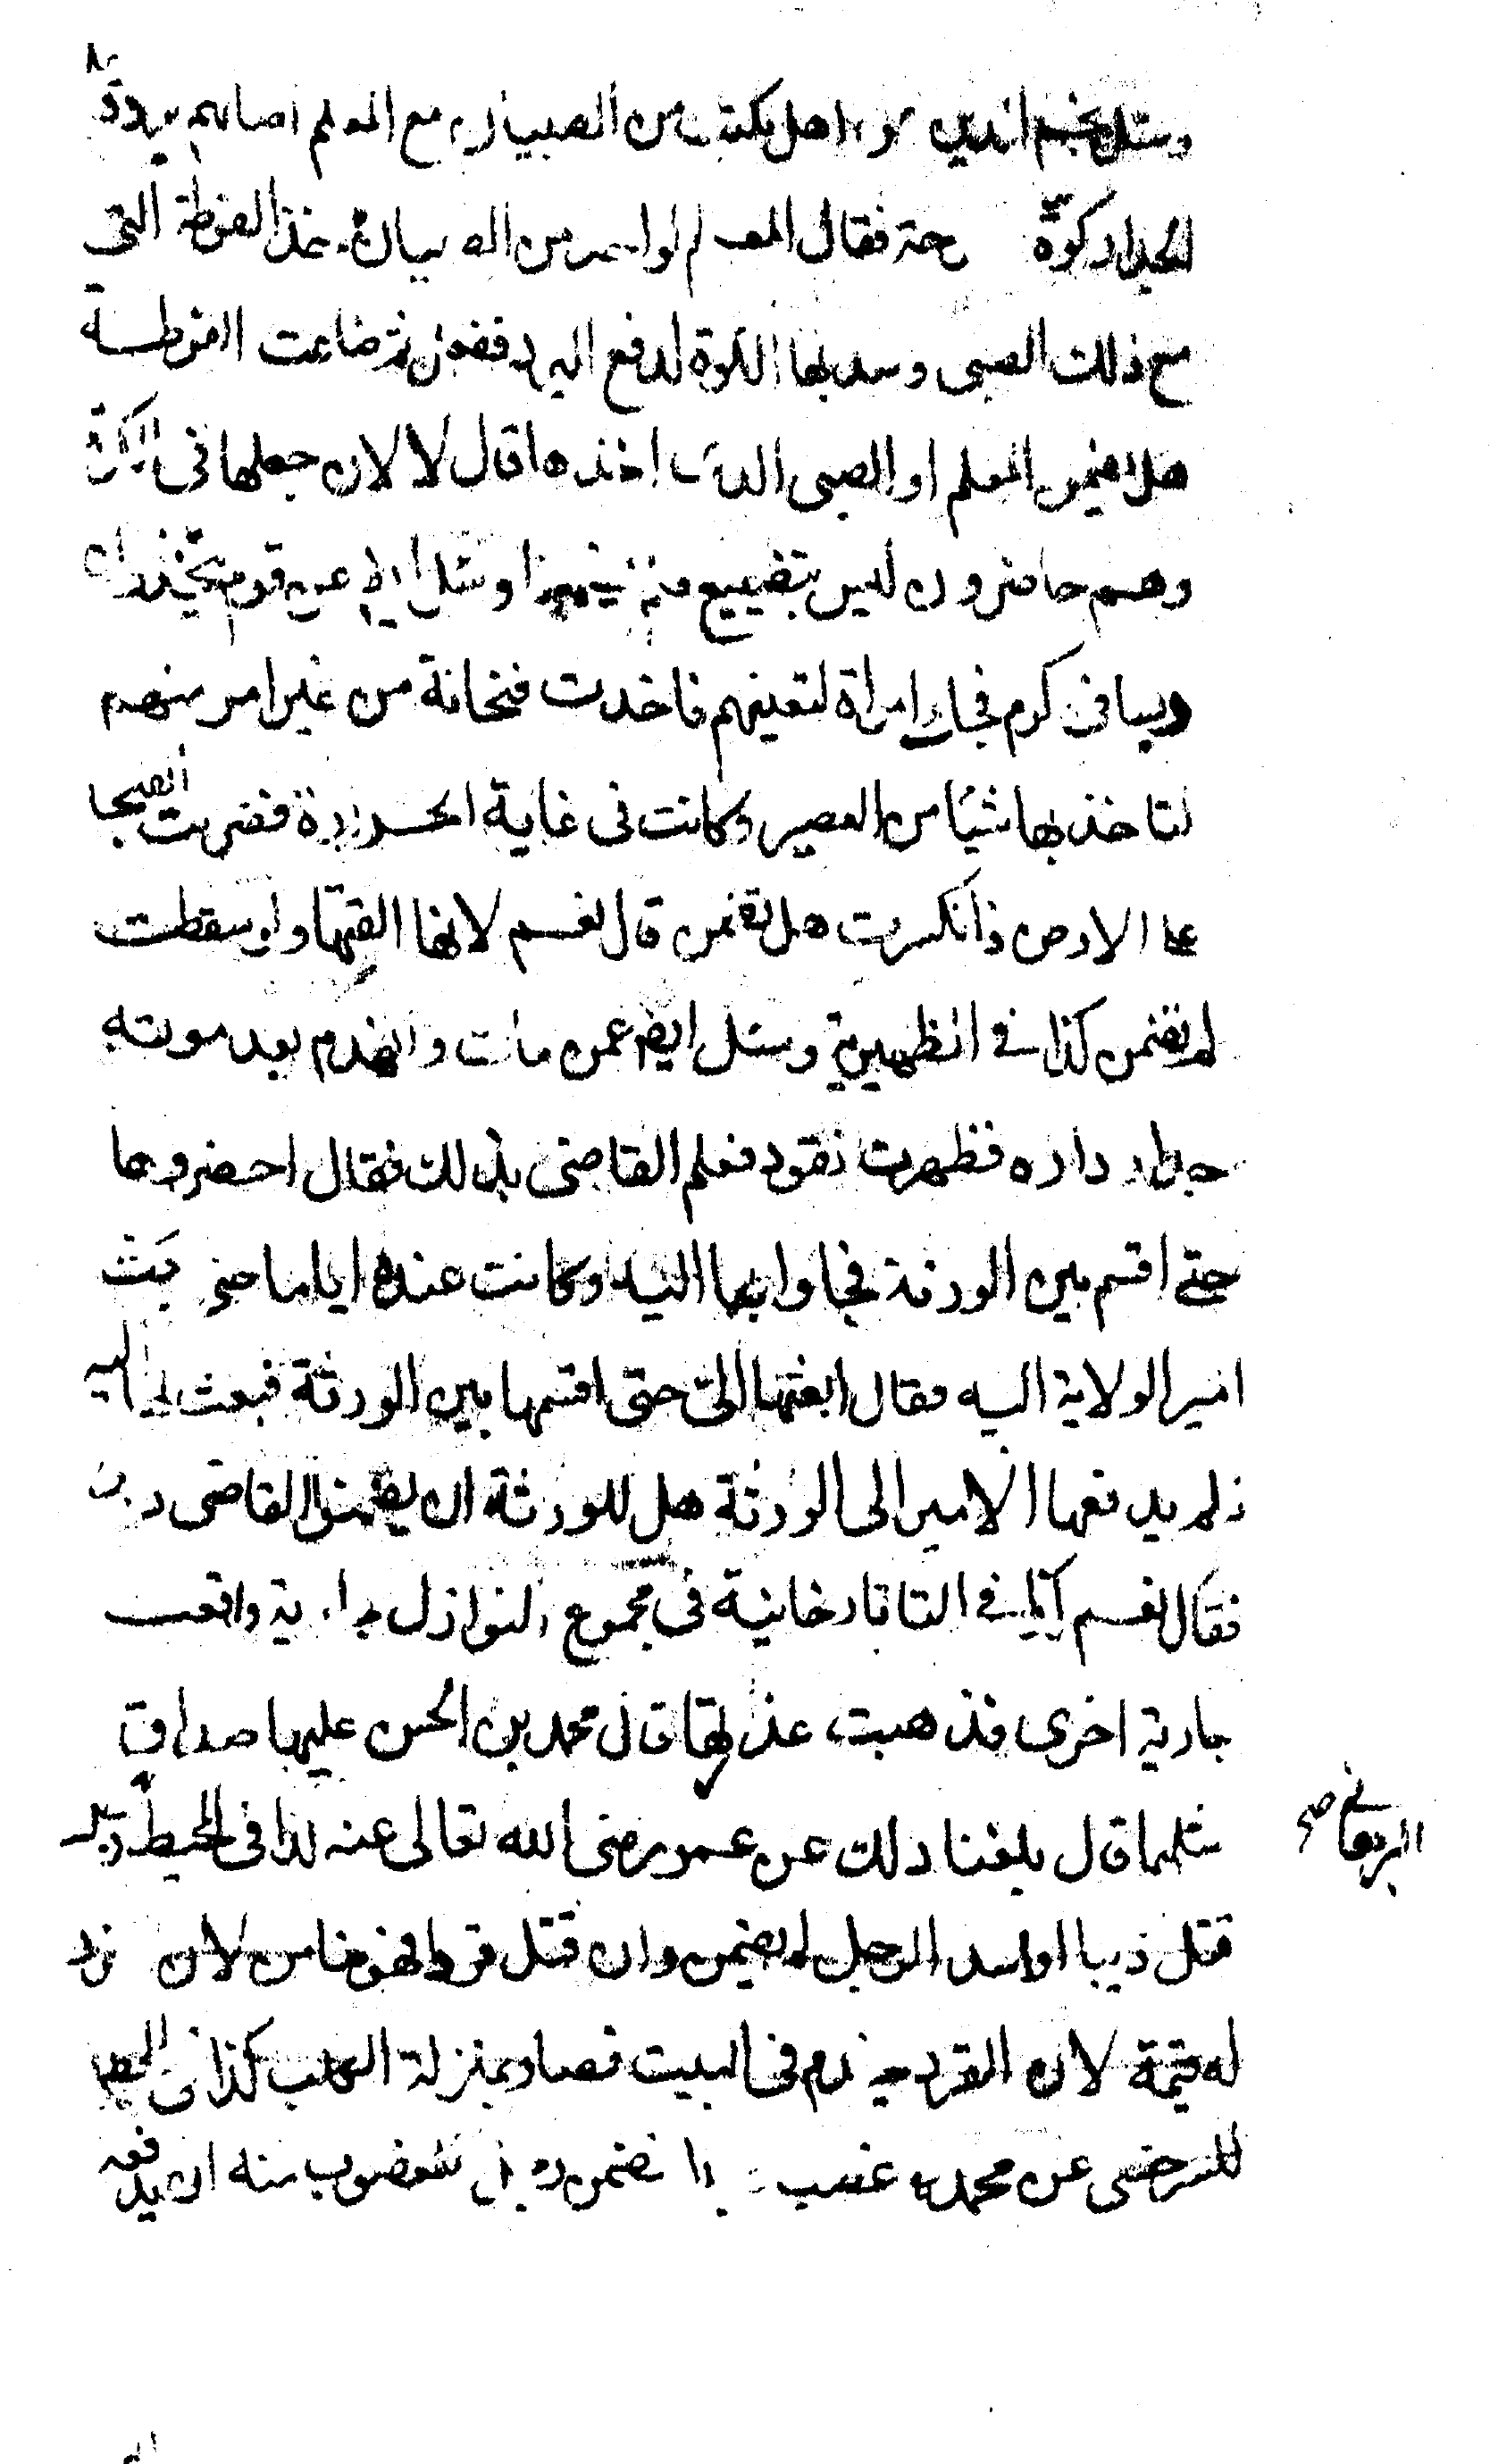 وسئل نجم الدين عن اهل مكتب من الصبيان مع المعلم اصابهم برودة
الجدار كوة فقال المعلم لواحد من الصبيان خذ الفوطة التي
مع ذلك الصبي وسد بها الكوة لدفع البرد ففعل ثم ضاعت الفوطة
هل يضمن المعلم او الصبي الذي اخذها قال لا لان جعلها في الكوة
وهم حاضرون ليس بتضييع وسئل ايضا عن قوم يتخذون
دبسا في كرم فجاءت امراة لتعينهم فاخذت فنجانة من غير امر منهم
لتاخذ بها شيئا من العصير وكانت في غاية الحرارة فضربت الفنجانة
على الارض فانكسرت هل تضمن قال نعم لانها القتها ولو سقطت
لم تضمن كذا في الظهيرية وسئل ايضا عمن مات وانهدم بعد موته
جدار داره فظهرت نقود فعلم القاضي بذلك فقال احضروها
حتى اقسم بين الورثة فجاوا بها اليه وكانت عنده اياما حتى بعث
امير الولاية اليه فقال ابعثها الي حتى اقسمها بين الورثة فبعث اليه
فلم يدفعها الامير الى الورثة هل للورثة ان يضمنوا القاضي
فقال نعم كذا في التاتارخانية في مجموع النوازل جارية واقعت
جارية اخرى فذهبت عذرتها قال محمد بن الحسن عليها صداق
مثلها قال بلغنا ذلك عن عمر رضي الله تعالى عنه كذا في المحيط
قتل ذيبا او اسد الرجل لم يضمن وان قتل قردا فهو ضامن لان القرد
له قيمة لان القرد يخدم في البيت فصار بمنزلة الكلب كذا في المحيط
للسرخسي عن محمد غصب المغصوب منه ان يدفعه